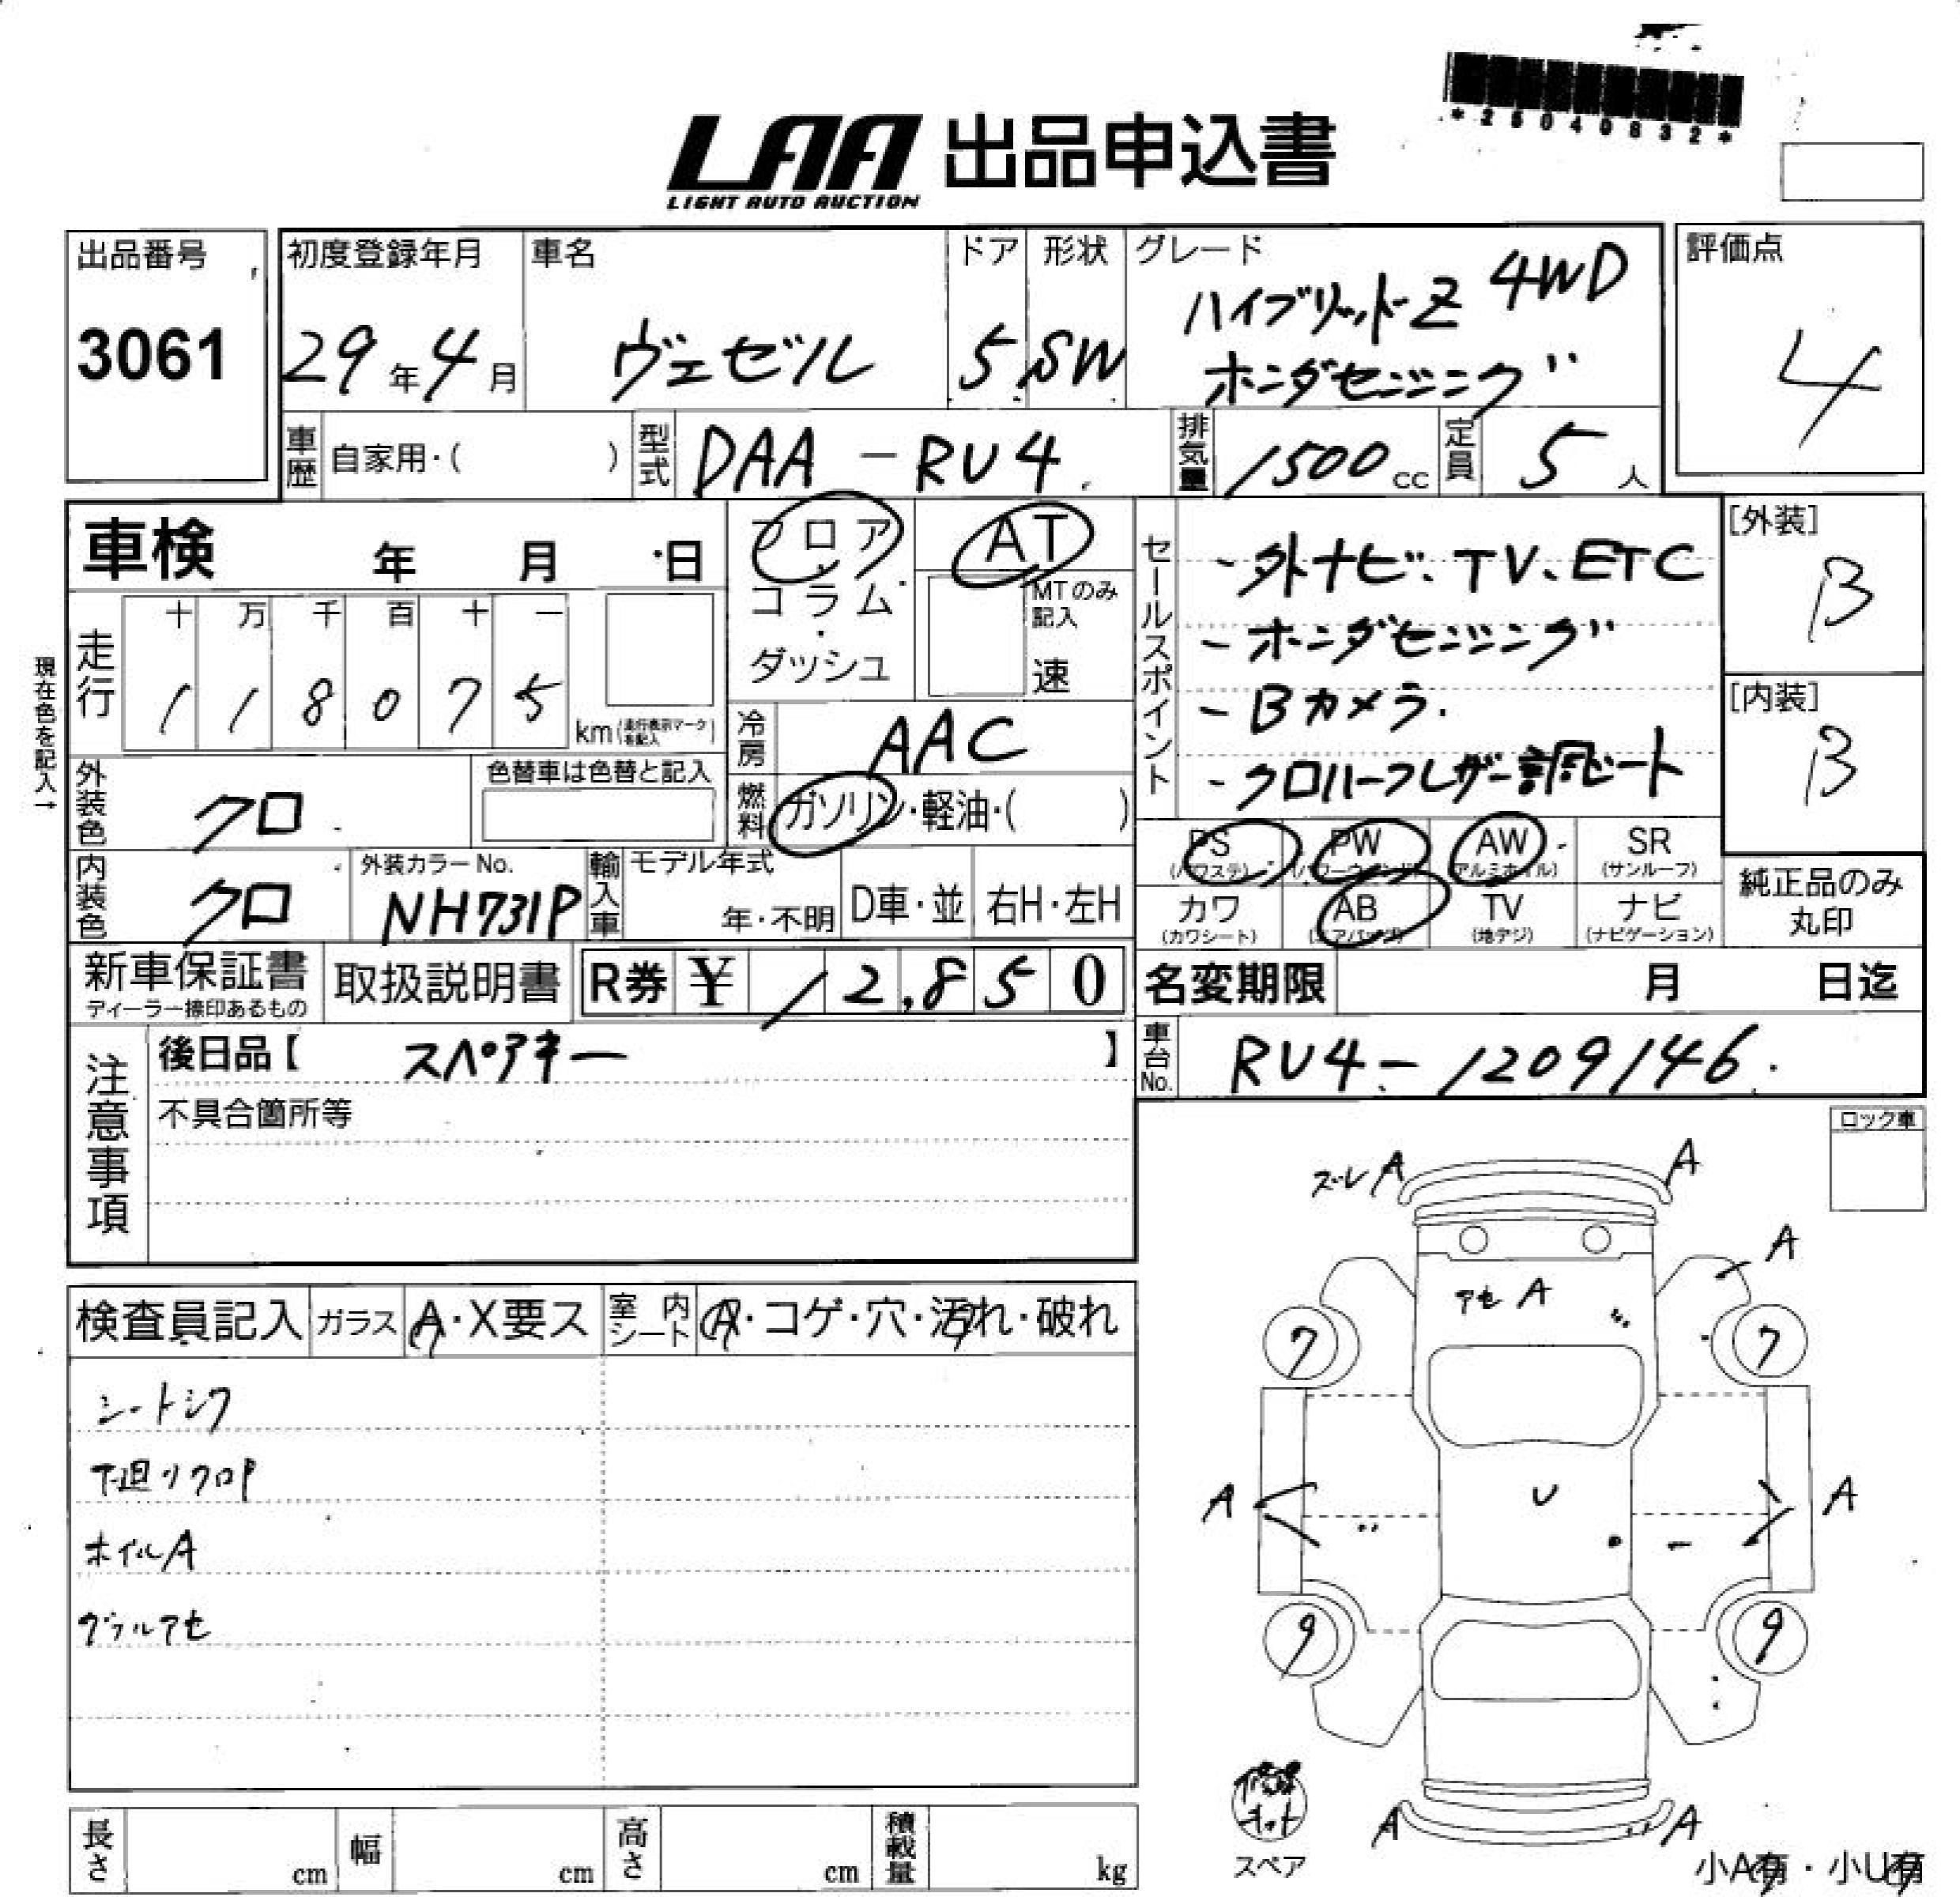 *25040832*
LAA 出品申込書
LIGHT AUTO AUCTION
出品番号
3061
初度登録年月
29年4月
車名
ヴェゼル
ドア
5
形状
SW
グレード
ハイブリッドZ 4WD
ホンダセンシング
評価点
4
車歴 自家用・( )
型式 DAA-RU4
排気量 1500cc
定員 5人
車検 年 月 日
フロア・コラム・ダッシュ
AT
MTのみ記入
速
セールスポイント
-外ナビ、TV、ETC
-ホンダセンシング
-Bカメラ.
-クロハーフレザー調シート
[外装]
B
[内装]
B
現在色を記入→
走行
十 万 千 百 十 一
1 1 8 0 7 5
km(走行表示マークを記入)
冷房 AAC
燃料 ガソリン・軽油・( )
外装色 クロ
色替車は色替と記入
内装色 クロ
外装カラーNo.
NH731P
輸入車
モデル年式
年・不明
D車・並
右H・左H
PS (パワステ)
PW (パワーウインド)
AW (アルミホイル)
SR (サンルーフ)
カワ (カワシート)
AB (エアバッグ)
TV (地デジ)
ナビ (ナビゲーション)
純正品のみ
丸印
新車保証書
ディーラー捺印あるもの
取扱説明書
R券 ¥ 12,850
名変期限 月 日迄
車台No. RU4-1209146.
注意事項
後日品【 スペアキー 】
不具合箇所等
ロック車
検査員記入
ガラス A・X要ス
室内シート A・コゲ・穴・汚れ・破れ
シートシワ
下廻りクロP
ホイルA
グリルアセ
ズレA
A
A
アセA
7
7
A
U
A
9
9
A
A
キット
スペア
小A有・小U有
長さ cm
幅 cm
高さ cm
積載量 kg